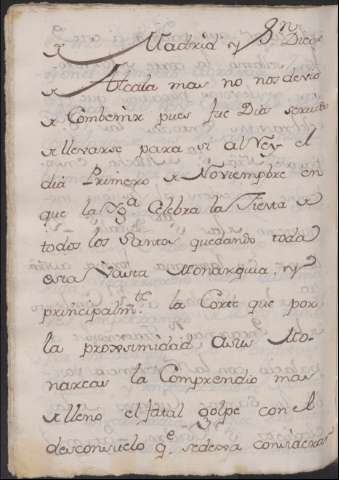 de Madrid y Sn. Diego
de Alcala mas no nos devio
de Combenir pues fue Dios servido
de llevarse para si al Rey el
dia Primero de Noviembre en
que la Yga. Celebra la Fiesta de
todos los Santos quedando toda
esta Vasta Monarquia, y
principalmte. la Corte que por
la proximidad a sus Mo-
narcas la Comprendio mas
de lleno el fatal golpe con el
desconsuelo qe. se dexa considerar